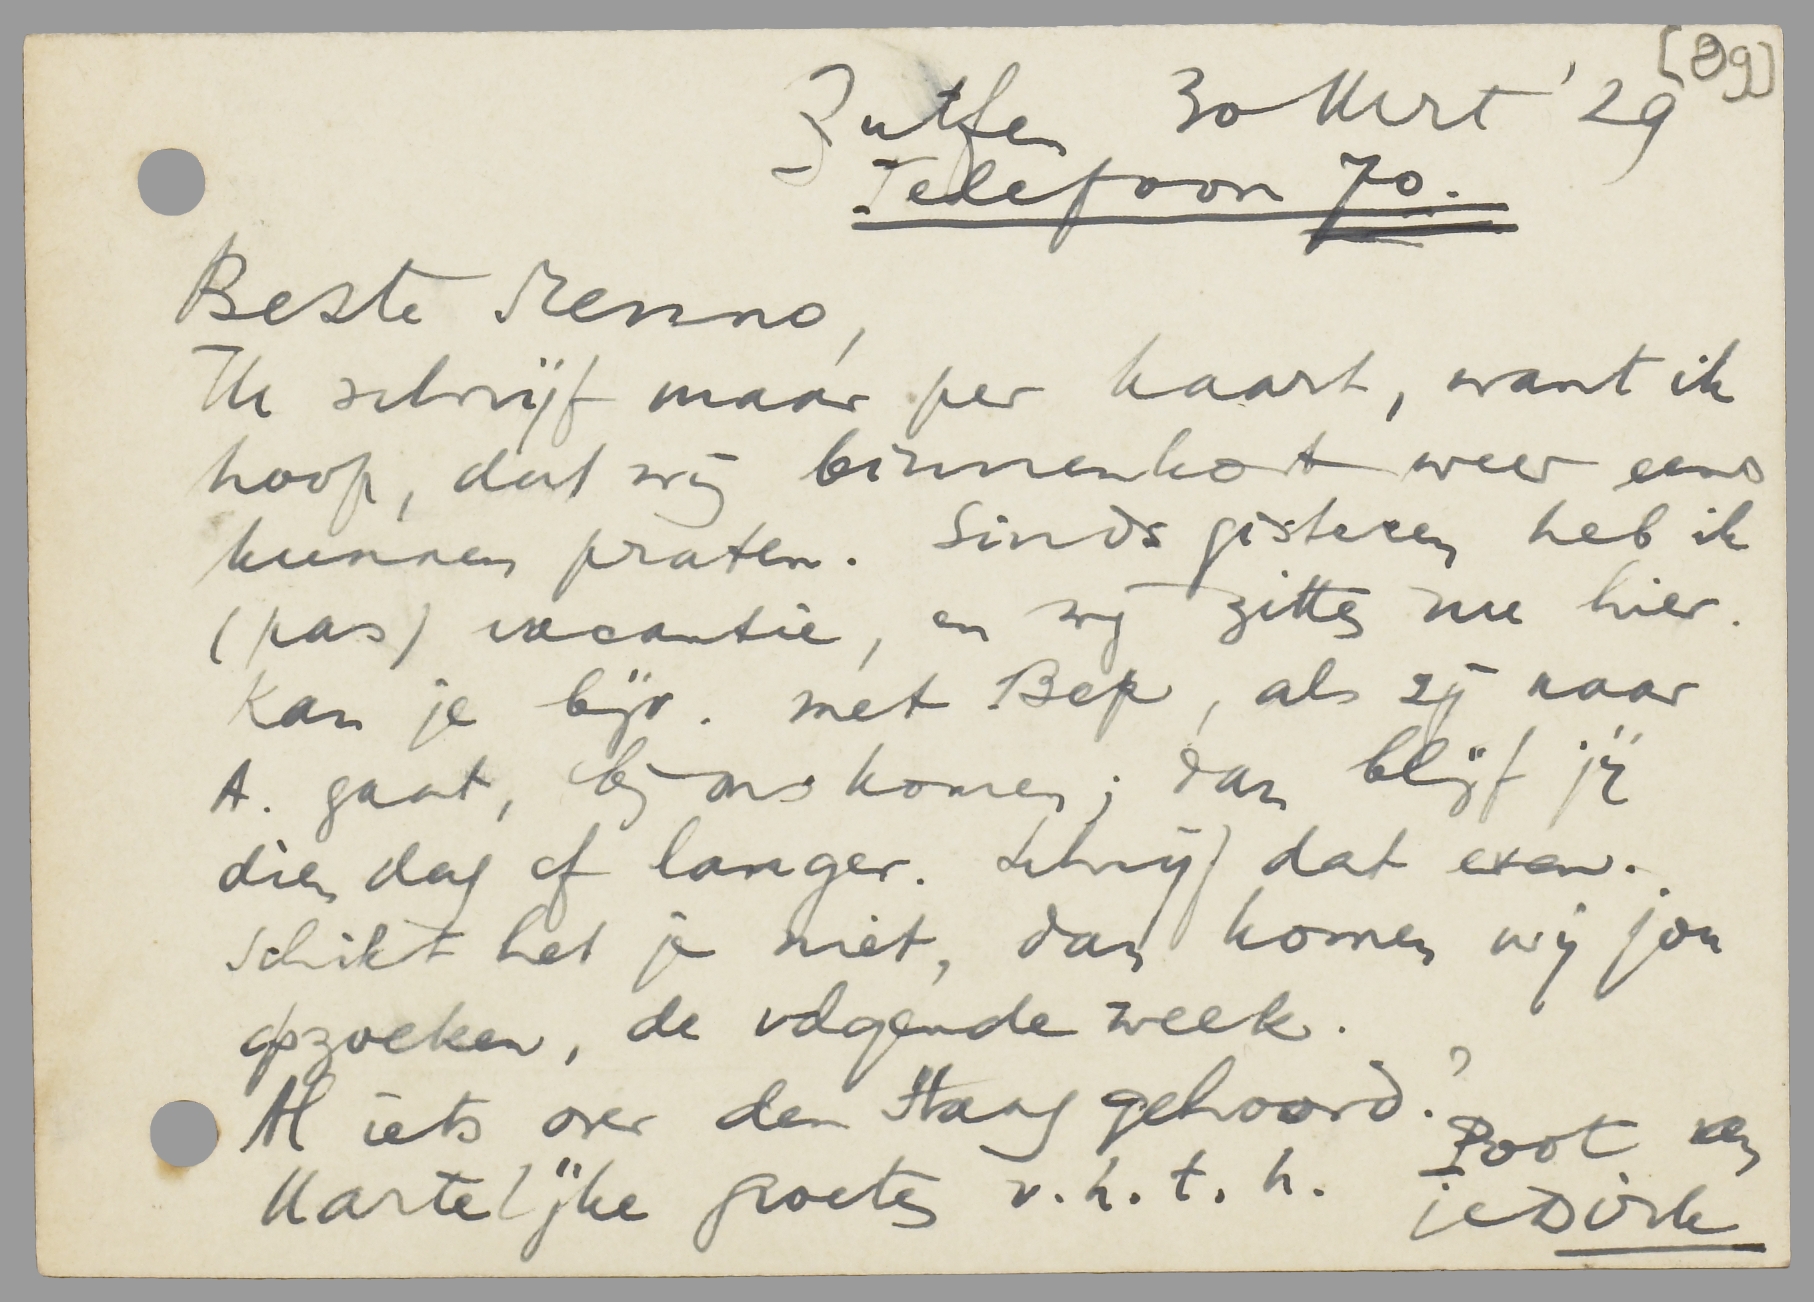 [89]
Zutfen 30 Mrt '29
Telefoon 70.
Beste Menno,
Ik schrijf maar per kaart, want ik
hoop, dat wij binnenkort weer eens
kunnen praten. Sinds gisteren heb ik
(pas) vacantie, en wij zitten nu hier.
Kan je bijv. met Bep, als zij naar
A. gaat, bij ons komen; dan blijf jij
dien dag of langer. Schrijf dat even.
Schikt het je niet, dan komen wij jou
opzoeken, de volgende week.
Al iets over den Haag gehoord?
Hartelijke groeten v.h.t.h. Poot van
je Dirk